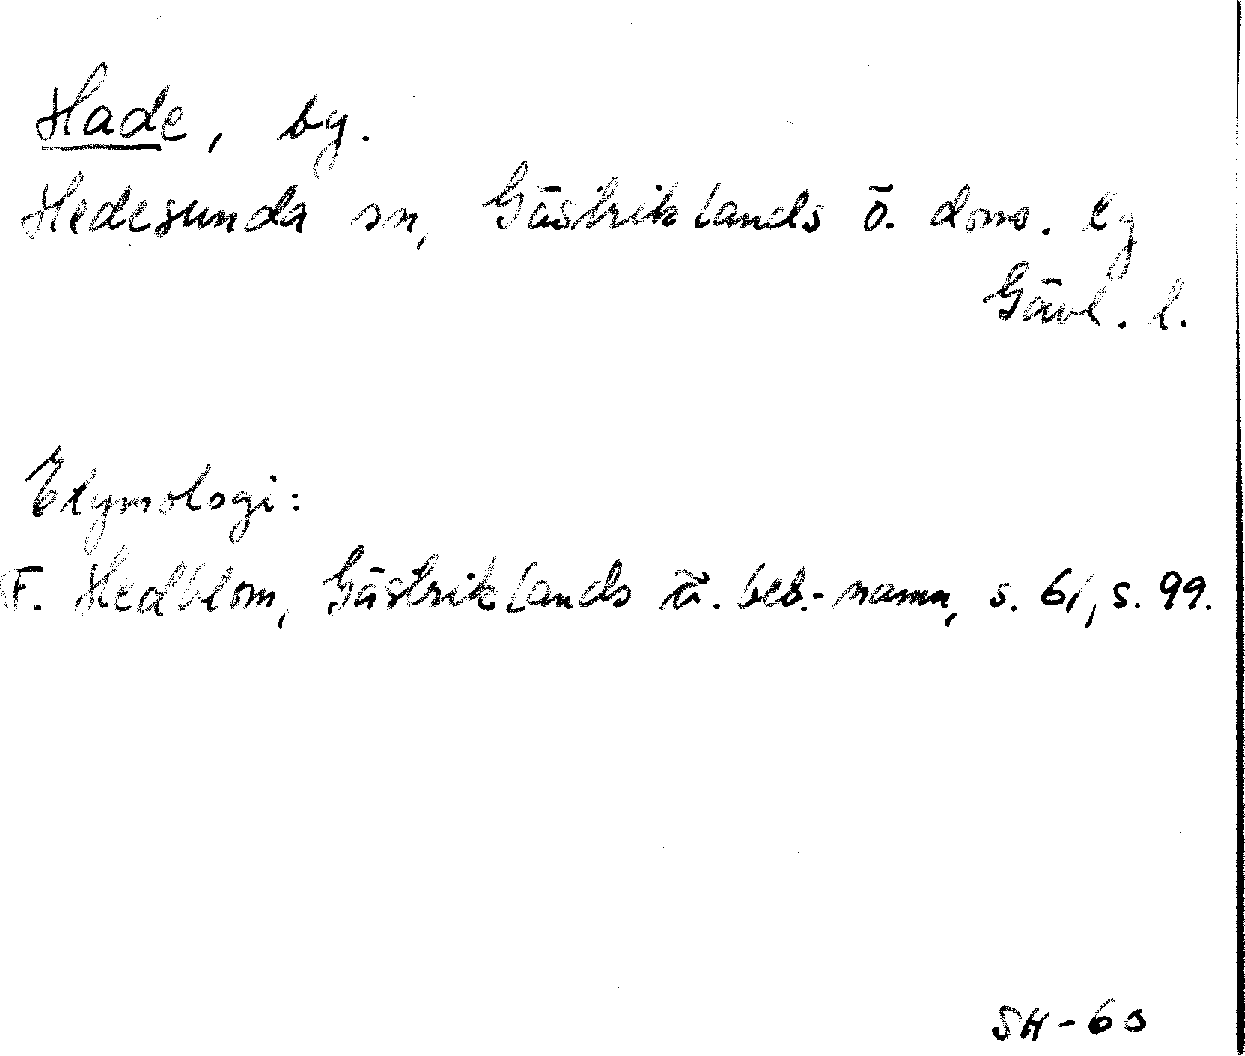 Hade, by.
Hedesunda sn, Gästriklands ö. doms. lg
Gävl. l.
Etymologi:
F. Hedblom, Gästriklands ä. beb.-namn, s. 61, s. 99.
SH-60